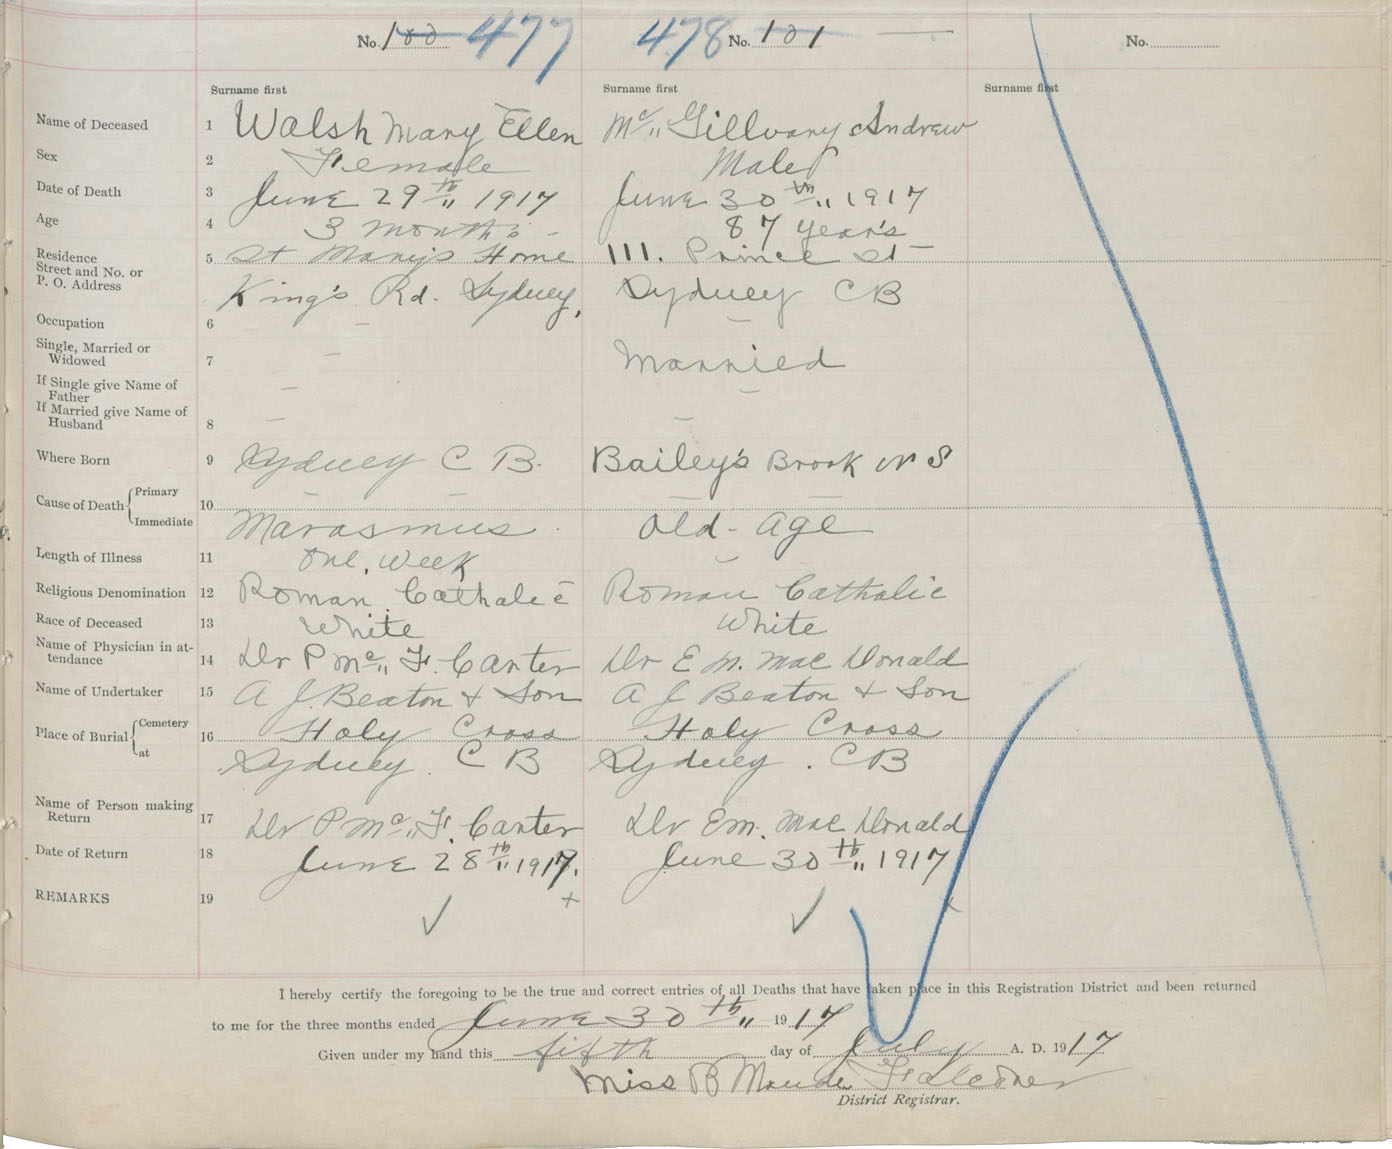 No. 100 477 478 No. 101 No.
Surname first Surname first Surname first
Name of Deceased 1 Walsh Mary Ellen Mc,, Gillvary Andrew
Sex 2 Female Male
Date of Death 3 June 29th,, 1917 June 30th,, 1917
Age 4 3 months - 87 year's
Residence 5 St Mary's Home 111. Prince St -
Street and No. or
P. O. Address King's Rd. Sydney, Sydney C B
Occupation 6 - -
Single, Married or
Widowed 7 - Married
If Single give Name of
Father - -
If Married give Name of
Husband 8 - -
Where Born 9 Sydney C B. Bailey's Brook N S
Cause of Death { Primary 10 - - - -
Immediate Marasmus. Old-age
Length of Illness 11 One, Week -
Religious Denomination 12 Roman Catholic Roman Catholic
Race of Deceased 13 White White
Name of Physician in at-
tendance 14 Dr P Mc,, F. Carter Dr E M. Mac Donald
Name of Undertaker 15 A J. Beaton & Son A J Beaton & Son
Place of Burial { Cemetery 16 Holy Cross Holy Cross
at Sydney. C B Sydney. C B
Name of Person making
Return 17 Dr P Mc,, F. Carter Dr E M. Mac Donald
Date of Return 18 June 28th,, 1917. June 30th,, 1917
REMARKS 19 ✓ + ✓ +
I hereby certify the foregoing to be the true and correct entries of all Deaths that have taken place in this Registration District and been returned
to me for the three months ended June 30th,, 1917
Given under my hand this fifth day of July A. D. 1917
Miss B Maude Falconer
District Registrar.